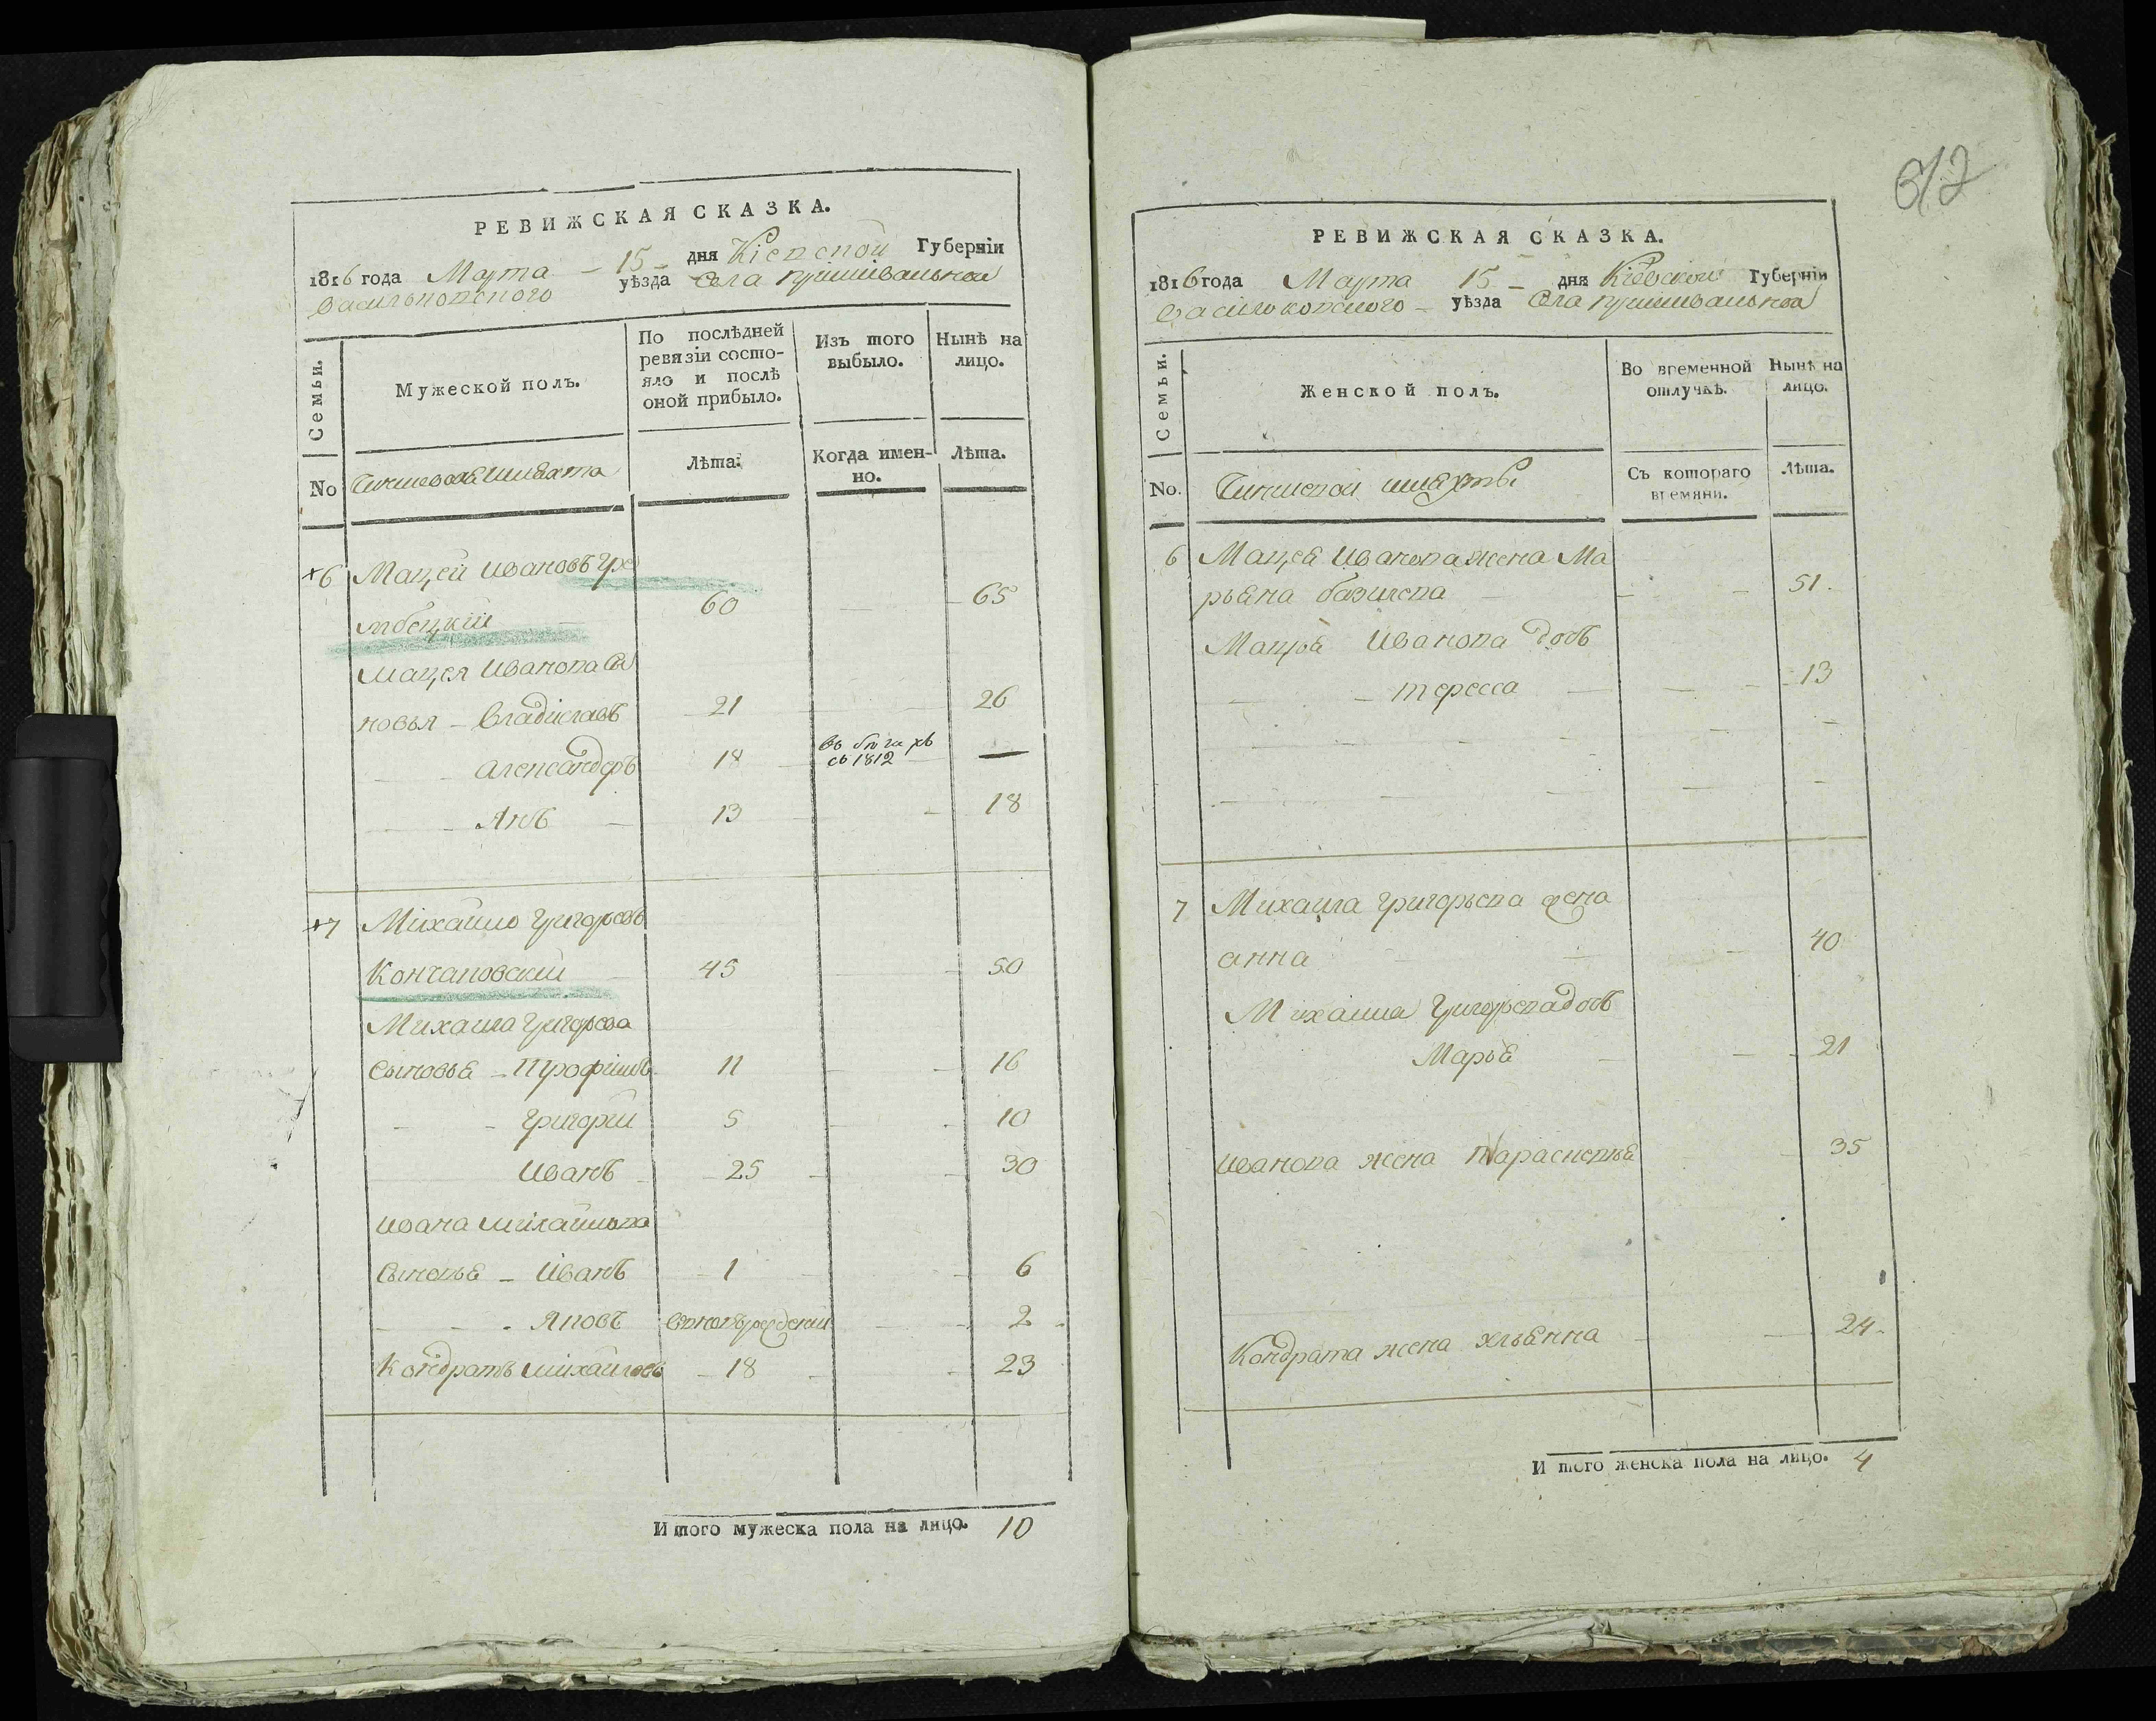 РЕВИЖСКАЯ СКАЗКА.
1816 года Марта 15 дня Кіевской Губерніи
Васильковского уѣзда Села
Семьи.
Мужеской полъ.
По послѣдней ревизіи состояло и послѣ оной прибыло.
Изъ того выбыло.
Нынѣ на лицо.
No
Чиншовая шляхта
Лѣта.
Когда именно.
Лѣта.
6 Мацей Ивановъ Гре
мбецкій 60 65
Мацея Иванова Сы
новья Владиславъ 21 26
Александеръ 18 въ бѣгахъ съ 1812 —
Янъ 13 18
7 Михайло Григорьевъ
Кончаповскій 45 50
Михайла Григорева
Сыновья Трофимъ 11 16
Григорій 5 10
Иванъ 25 30
Ивана Михайлова
Сыновья Иванъ 1 6
Яковъ 2
Кондратъ Михайловъ 18 23
И того мужеска пола на лицо. 10
672
РЕВИЖСКАЯ СКАЗКА.
1816 года Марта 15 дня Кіевской Губерніи
Васильковского уѣзда Села
Семьи.
Женской полъ.
Во временной отлучкѣ.
Нынѣ на лицо.
No.
Чиншовой шляхты
Съ котораго времяни.
Лѣта.
6 Мацея Иванова жена Ма
рьяна 51.
Мацея Иванова дочь
тересса 13
7 Михайла Григорьева жена
анна 40
Михайла Григорева дочь
Марья 21
Иванова жена Парасковья 35
Кондрата жена 24.
И того женска пола на лицо. 4